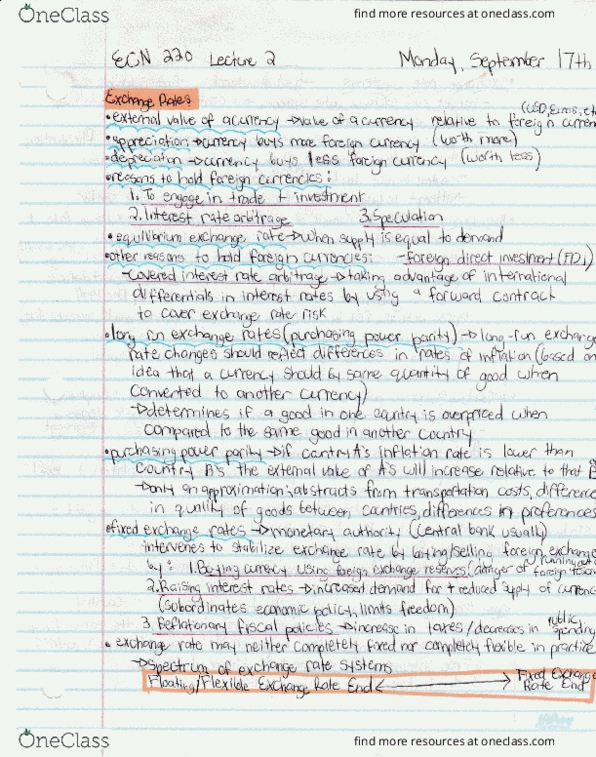 OneClass
find more resources at oneclass.com
ECN 220 Lecture 2 Monday, September 17th
Exchange Rates
(USD, Euros, etc
•external value of a currency → value of a currency relative to foreign curren
•appreciation → currency buys more foreign currency (worth more)
•depreciation → currency buys less foreign currency (worth less)
•reasons to hold foreign currencies:
1. To engage in trade + investment
2. Interest rate arbitrage 3. Speculation
•equilibrium exchange rate → when supply is equal to demand
•other reasons to hold foreign currencies: -foreign direct investment (FDI)
-covered interest rate arbitrage → taking advantage of international
differentials in interest rates by using a forward contract
to cover exchange rate risk
•long run exchange rates (purchasing power parity) → long-run exchange
rate changes should reflect differences in rates of inflation (based on
idea that a currency should by same quantity of good when
converted to another currency)
→ determines if a good in one country is overpriced when
compared to the same good in another country
•purchasing power parity → if country A's inflation rate is lower than
country B's the external value of A's will increase relative to that B
→ only an approximation; abstracts from transportation costs, difference
in quality of goods between countries, differences in preferences
•fixed exchange rates → monetary authority (central bank usually)
intervenes to stabilize exchange rate by buying/selling foreign exchange
by: 1. Buying currency using foreign exchange reserves (danger of running out of foreign
2. Raising interest rates → increased demand for + reduced supply of currenc
(subordinates economic policy, limits freedom)
3. Deflationary fiscal policies → increase in taxes/decreases in public spending
• exchange rate may neither completely fixed nor completely flexible in practice
→ spectrum of exchange rate systems
Floating/Flexible Exchange Rate End ←→ Fixed Exchange Rate End
OneClass
find more resources at oneclass.com